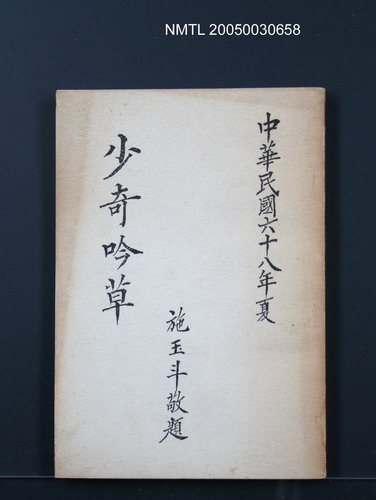 NMTL 20050030658
中華民國六十八年夏
少奇吟草
施玉斗敬題